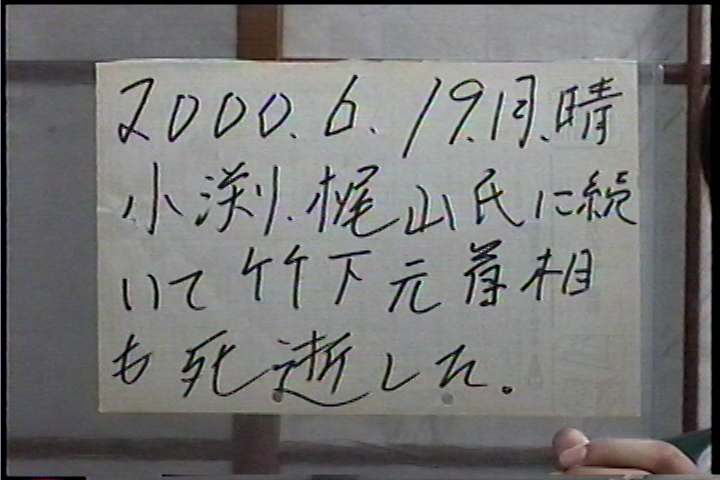 2000.6.19.月.晴
小渕.梶山氏に続
いて竹下元首相
も死逝した。